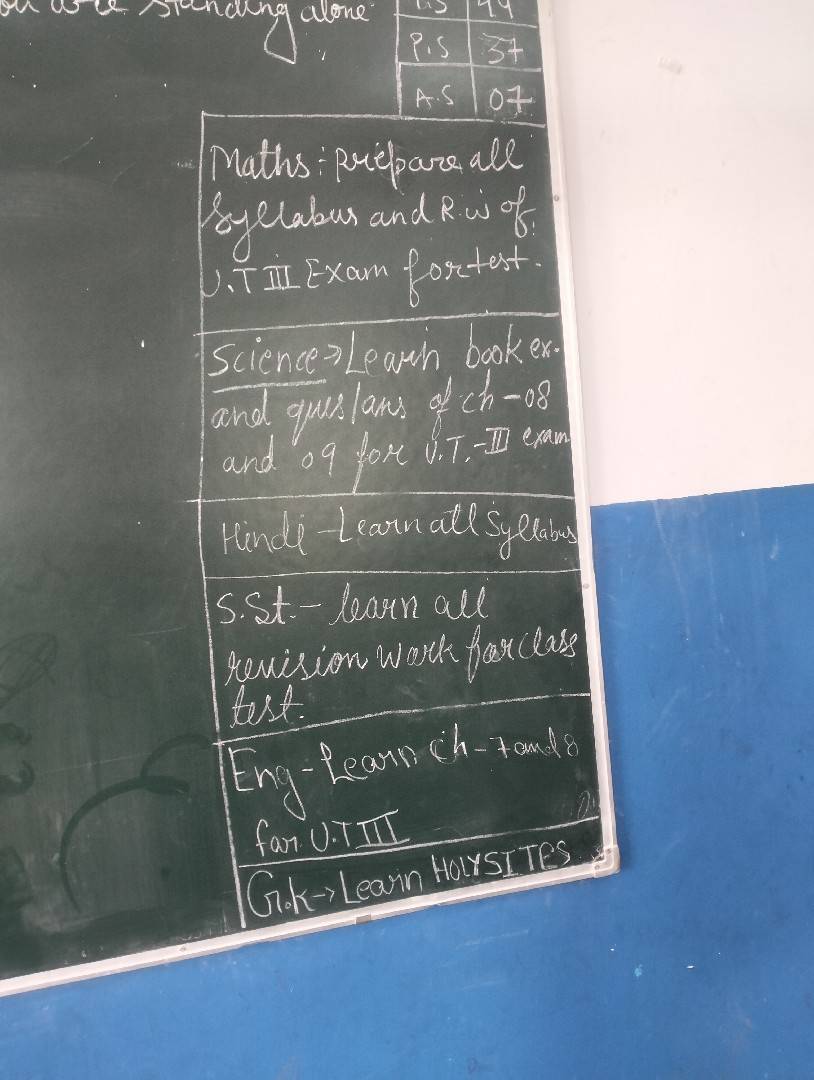 you are standing alone
T.S 44
P.S 37
A.S 07
Maths : prepare all
Syllabus and R.w of.
U.T III Exam for test.
Science → Learn book ex.
and ques/ans of ch-08
and 09 for U.T.-III exam
Hindi - Learn all Syllabus
S.St. - learn all
revision work for class
test.
Eng - Learn ch-7 and 8
for U.T III
G.k → Learn HOLY SITES